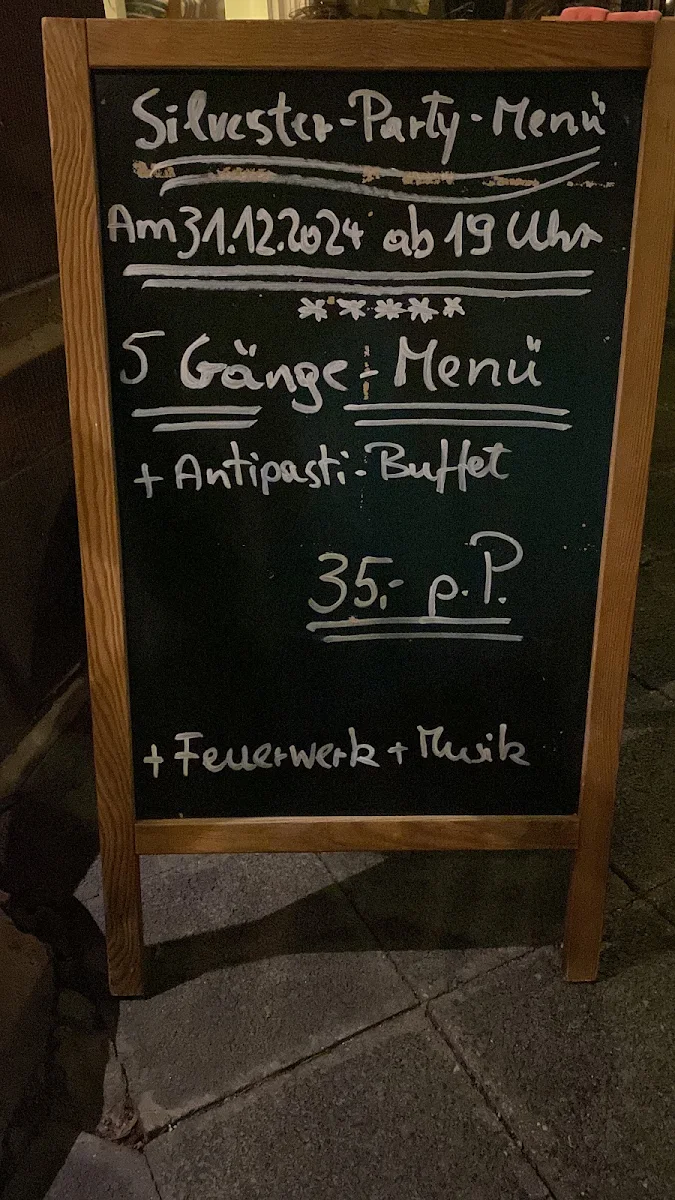 Silvester-Party-Menü
Am 31.12.2024 ab 19 Uhr
*****
5 Gänge-Menü
+ Antipasti-Buffet
35,- p.P.
+ Feuerwerk + Musik